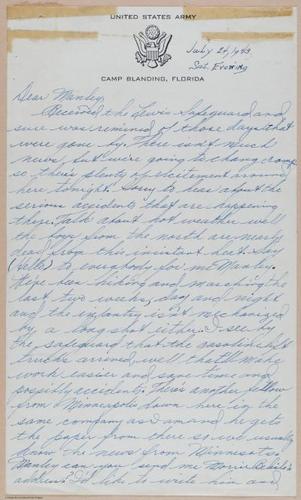 UNITED STATES ARMY
CAMP BLANDING, FLORIDA
July 24, 1943
Sat. Evening
Dear Manley,
Received the Lewis Safeguard and
sure was reminded of those days that
were gone by. There isn't much
news, but we're going to change camp
so there's plenty of excitement around
here tonight. Sorry to hear about the
serious accidents that are happening
there. Talk about hot weather well
the boys from the north are nearly
dead from this heat. Say
(hello) to everybody for me Manley.
hiking and marching the
last two weeks, day and night
and the infantry isn't mechanized
by a long shot either. I see by
the safeguard that the gasoline
trucks arrived, well that'll make
work easier and save time and
possibly accidents. There's another fellow
from Minneapolis down here in the
same company as I am and he gets
the paper from there so we usually
know the news from Minnesota.
Manley can you send me
address? I'd like to write him and